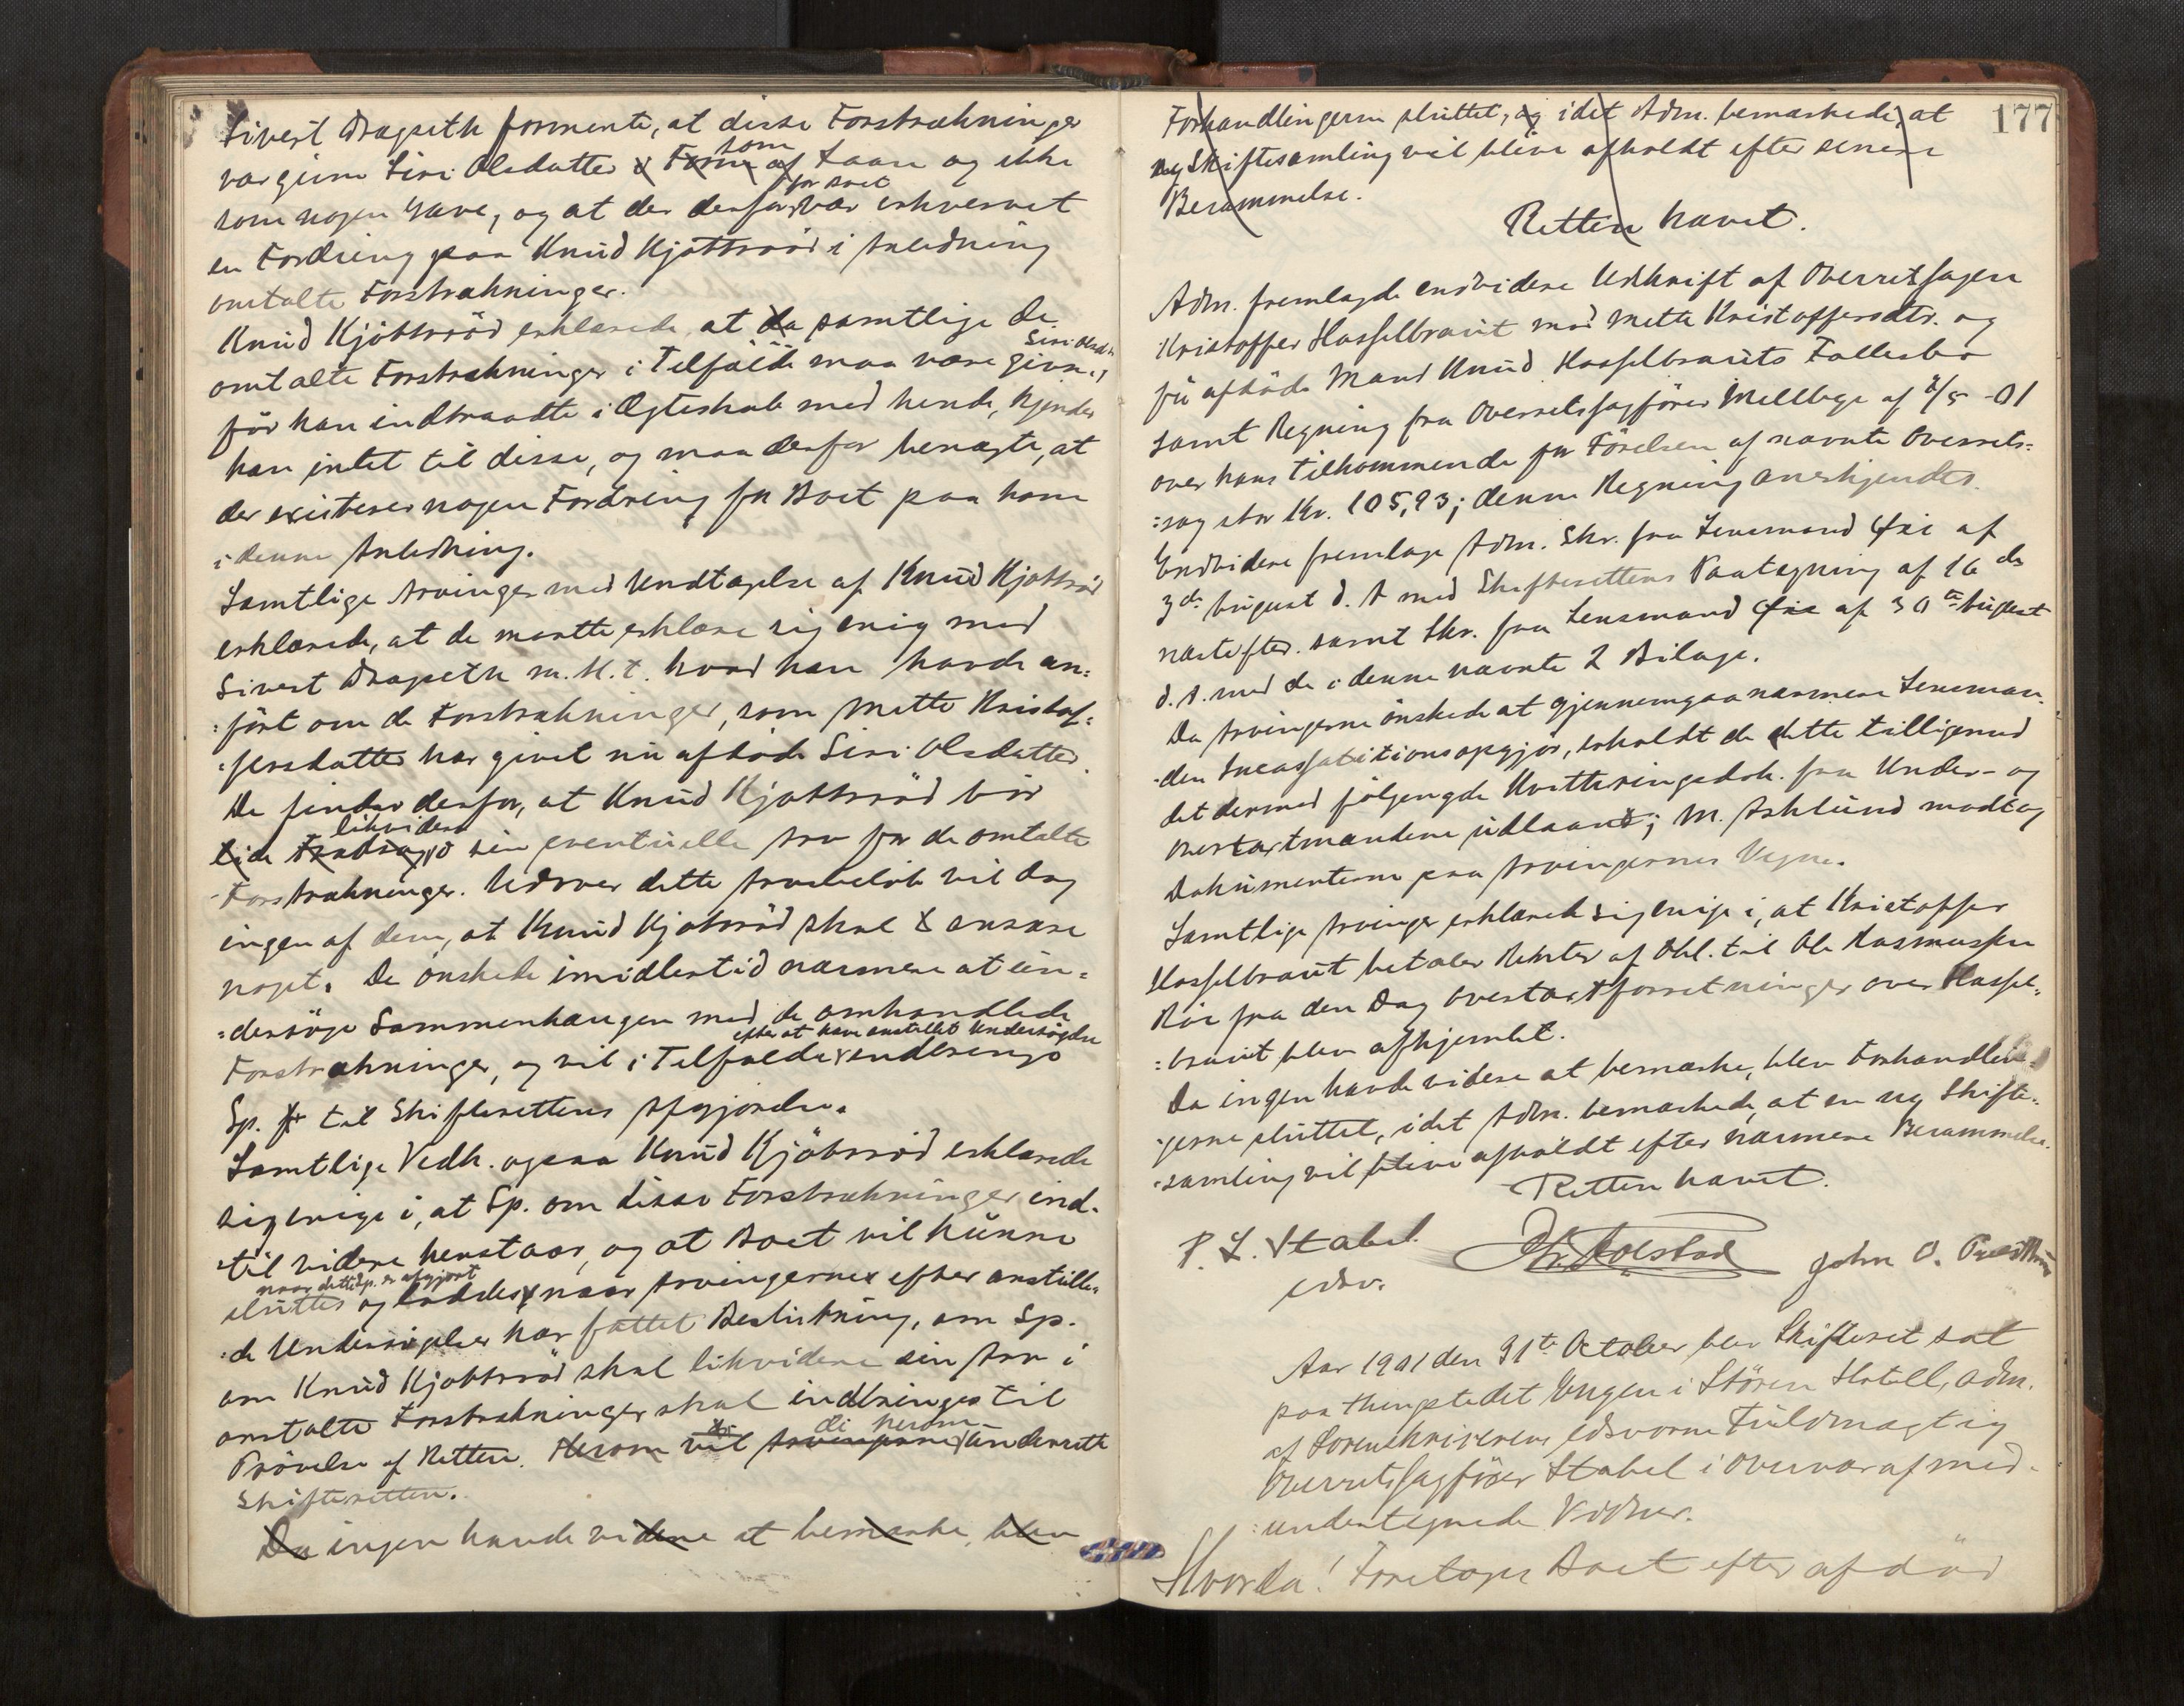 Sivert Dragseth formente, at disse Forstrækninger
som
var givne Siri Olsdatter i Form af Laan og ikke
for Boet
som nogen Gave, og at der derfor var erhvervet
en Fordring paa Knud Kjøttsrød i Anledning
omtalte Forstrækninger.
Knud Kjøttsrød erklærede, at da samtlige de
Siri Olsdtr
omtalte Forstrækninger i Tilfælde maa være givne,
før han indtraadte i Ægteskab med hende, kjender
han intet til disse, og maa derfor benægte, at
der existerer nogen Fordring for Boet paa ham
i denne Anledning.
Samtlige Arvinger med Undtagelse af Knud Kjøttsrød
erklærede, at de maatte erklære sig enig med
Sivert Dragseth m. H. t. hvad han havde an=
=ført om de Forstrækninger, som Mette Kristof=
=fersdatter har givet nu afdøde Siri Olsdatter.
De finder derfor, at Knud Kjøttsrød bør
likvidere
lide Fradrag i sin eventuelle Arv for de omtalte
Forstrækninger. Udover dette Arvebeløb vil dog
ingen af dem, at Knud Kjøttsrød skal ansvare
noget. De ønskede imidlertid nærmere at un=
=dersøge Sammenhængen med de omhandlede
efter at have anstillet Undersøgelse
Forstrækninger, og vil i Tilfælde indbringe
Sp. til Skifterettens Afgjørelse.
Samtlige Vedk. ogsaa Knud Kjøttsrød erklærede
sig enige i, at Sp. om disse Forstrækninger ind=
=til videre henstaar, og at Boet vil kunne
naar dette Sp. er afgjort
sluttes og loddes naar Arvingerne efter anstille=
=de Undersøgelser har fattet Beslutning, om Sp.
om Knud Kjøttsrød skal likvidere sin Arv i
omtalte Forstrækninger skal indbringes til
de herom
Prøvelse af Retten. Herom vil Arvingerne underrette
Skifteretten.
Da ingen havde videre at bemærke, blev
177
Forhandlingerne sluttet, og idet Adm. bemærkede, at
ny Skiftesamling vil blive afholdt efter senere
Berammelse.
Retten hævet.
Adm. fremlagde endvidere Udskrift af Overretssagen
Kristoffer Hasselbraut mod Mette Kristoffersdtr. og
nu afdøde Mand Knud Hasselbrauts Fællesbo
samt Regning fra Overretssagfører Mellbye af /5 -01
over hans Tilkommende for Førelsen af nævnte Overrets=
=sag stor Kr. 105,93; denne Regning anerkjendtes.
Endvidere fremlage Adm. Skr. fra Lensmand Øie af
3de August d. A med Skifterettens Paategning af 16 ds
næstefter. samt Skr. fra Lensmand Øie af 30te August
d. A. med de i denne nævnte 2 Bilage.
Da Arvingerne ønskede at gjennemgaa nærmere Lensman=
=den Incassationsopgjør, erholdt de dette tilligemed
det dermed følgengde Kvitteringsdok. fra Under- og
overtaxtmændene udlaant; M. Asklund modtog
Dokumenterne paa Arvingernes Vegne.
Samtlige Arvinger erklærede sig enige i, at Kristoffer
Hasselbraut betaler Renter af Obl. til Ole Rasmussen
Roe fra den Dag Overtaxtforretninger over Hassel=
=braut blev afhjemlet.
Da ingen havde videre at bemærke, blev Forhandlin=
=gerne sluttet, idet Adm. bemærkede, at en ny Skifte=
=samling vil blive afholdt efter nærmere Berammelse.
Retten hævet.
P. L. Stabel
edsv.
Chr. Rolstad
John O.
Aar 1901 den 31te October blev Skifteret sat
paa Thingstedet Engen i Støren Hotell, adm.
af Sorenskriverens edsvorne Fuldmægtig
Overretssagfører Stabel i Overvær af med=
=undertegnede Vidner.
Hvorda! Foretoges Boet efter afdød